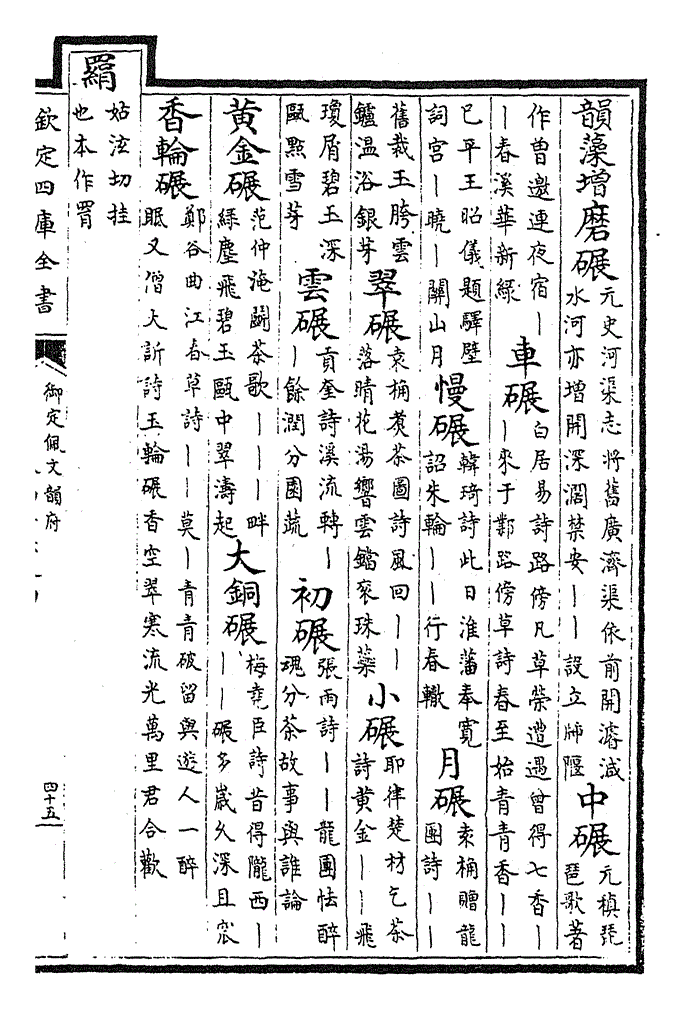 韻藻增磨碾元史河渠志將舊廣濟渠依前開濬減
水河亦增開深濶禁安丨丨設立牐隁
中碾元稹琵
琶歌著
作曽邀連夜宿丨
丨春溪華新緑
車碾白居易詩路傍凡草榮遭遇曽得七香丨
丨來于鄴路傍草詩春至始青青香丨丨
已平王昭儀題驛壁
詞宫丨曉丨闗山月
慢碾韓琦詩此日淮藩奉寛
詔朱輪丨丨行春轍
月碾袁桷贈龍
團詩丨丨
舊裁玉胯雲
鑪温浴銀芽
翠碾袁桷煑茶圖詩風回丨丨
落晴花湯響雲鐺衮珠蘂
小碾耶律楚材乞茶
詩黄金丨丨飛
瓊屑碧玉深
甌點雪芽
雲碾貢奎詩溪流轉丨
丨餘潤分園蔬
初碾張雨詩丨丨龍團怯醉
瑰分茶故事與誰論
黄金碾范仲淹鬭茶歌丨丨丨畔
緑塵飛碧玉甌中翠濤起
大銅碾梅堯臣詩昔得隴西丨
丨丨碾多嵗久深且窊
香輪碾鄭谷曲江春草詩丨丨莫丨青青破留與遊人一醉
眠又僧大訢詩玉輪碾香空翠寒流光萬里君合歡
羂姑泫切挂
也本作罥
欽定四庫全書
御定佩文韻府
四十五